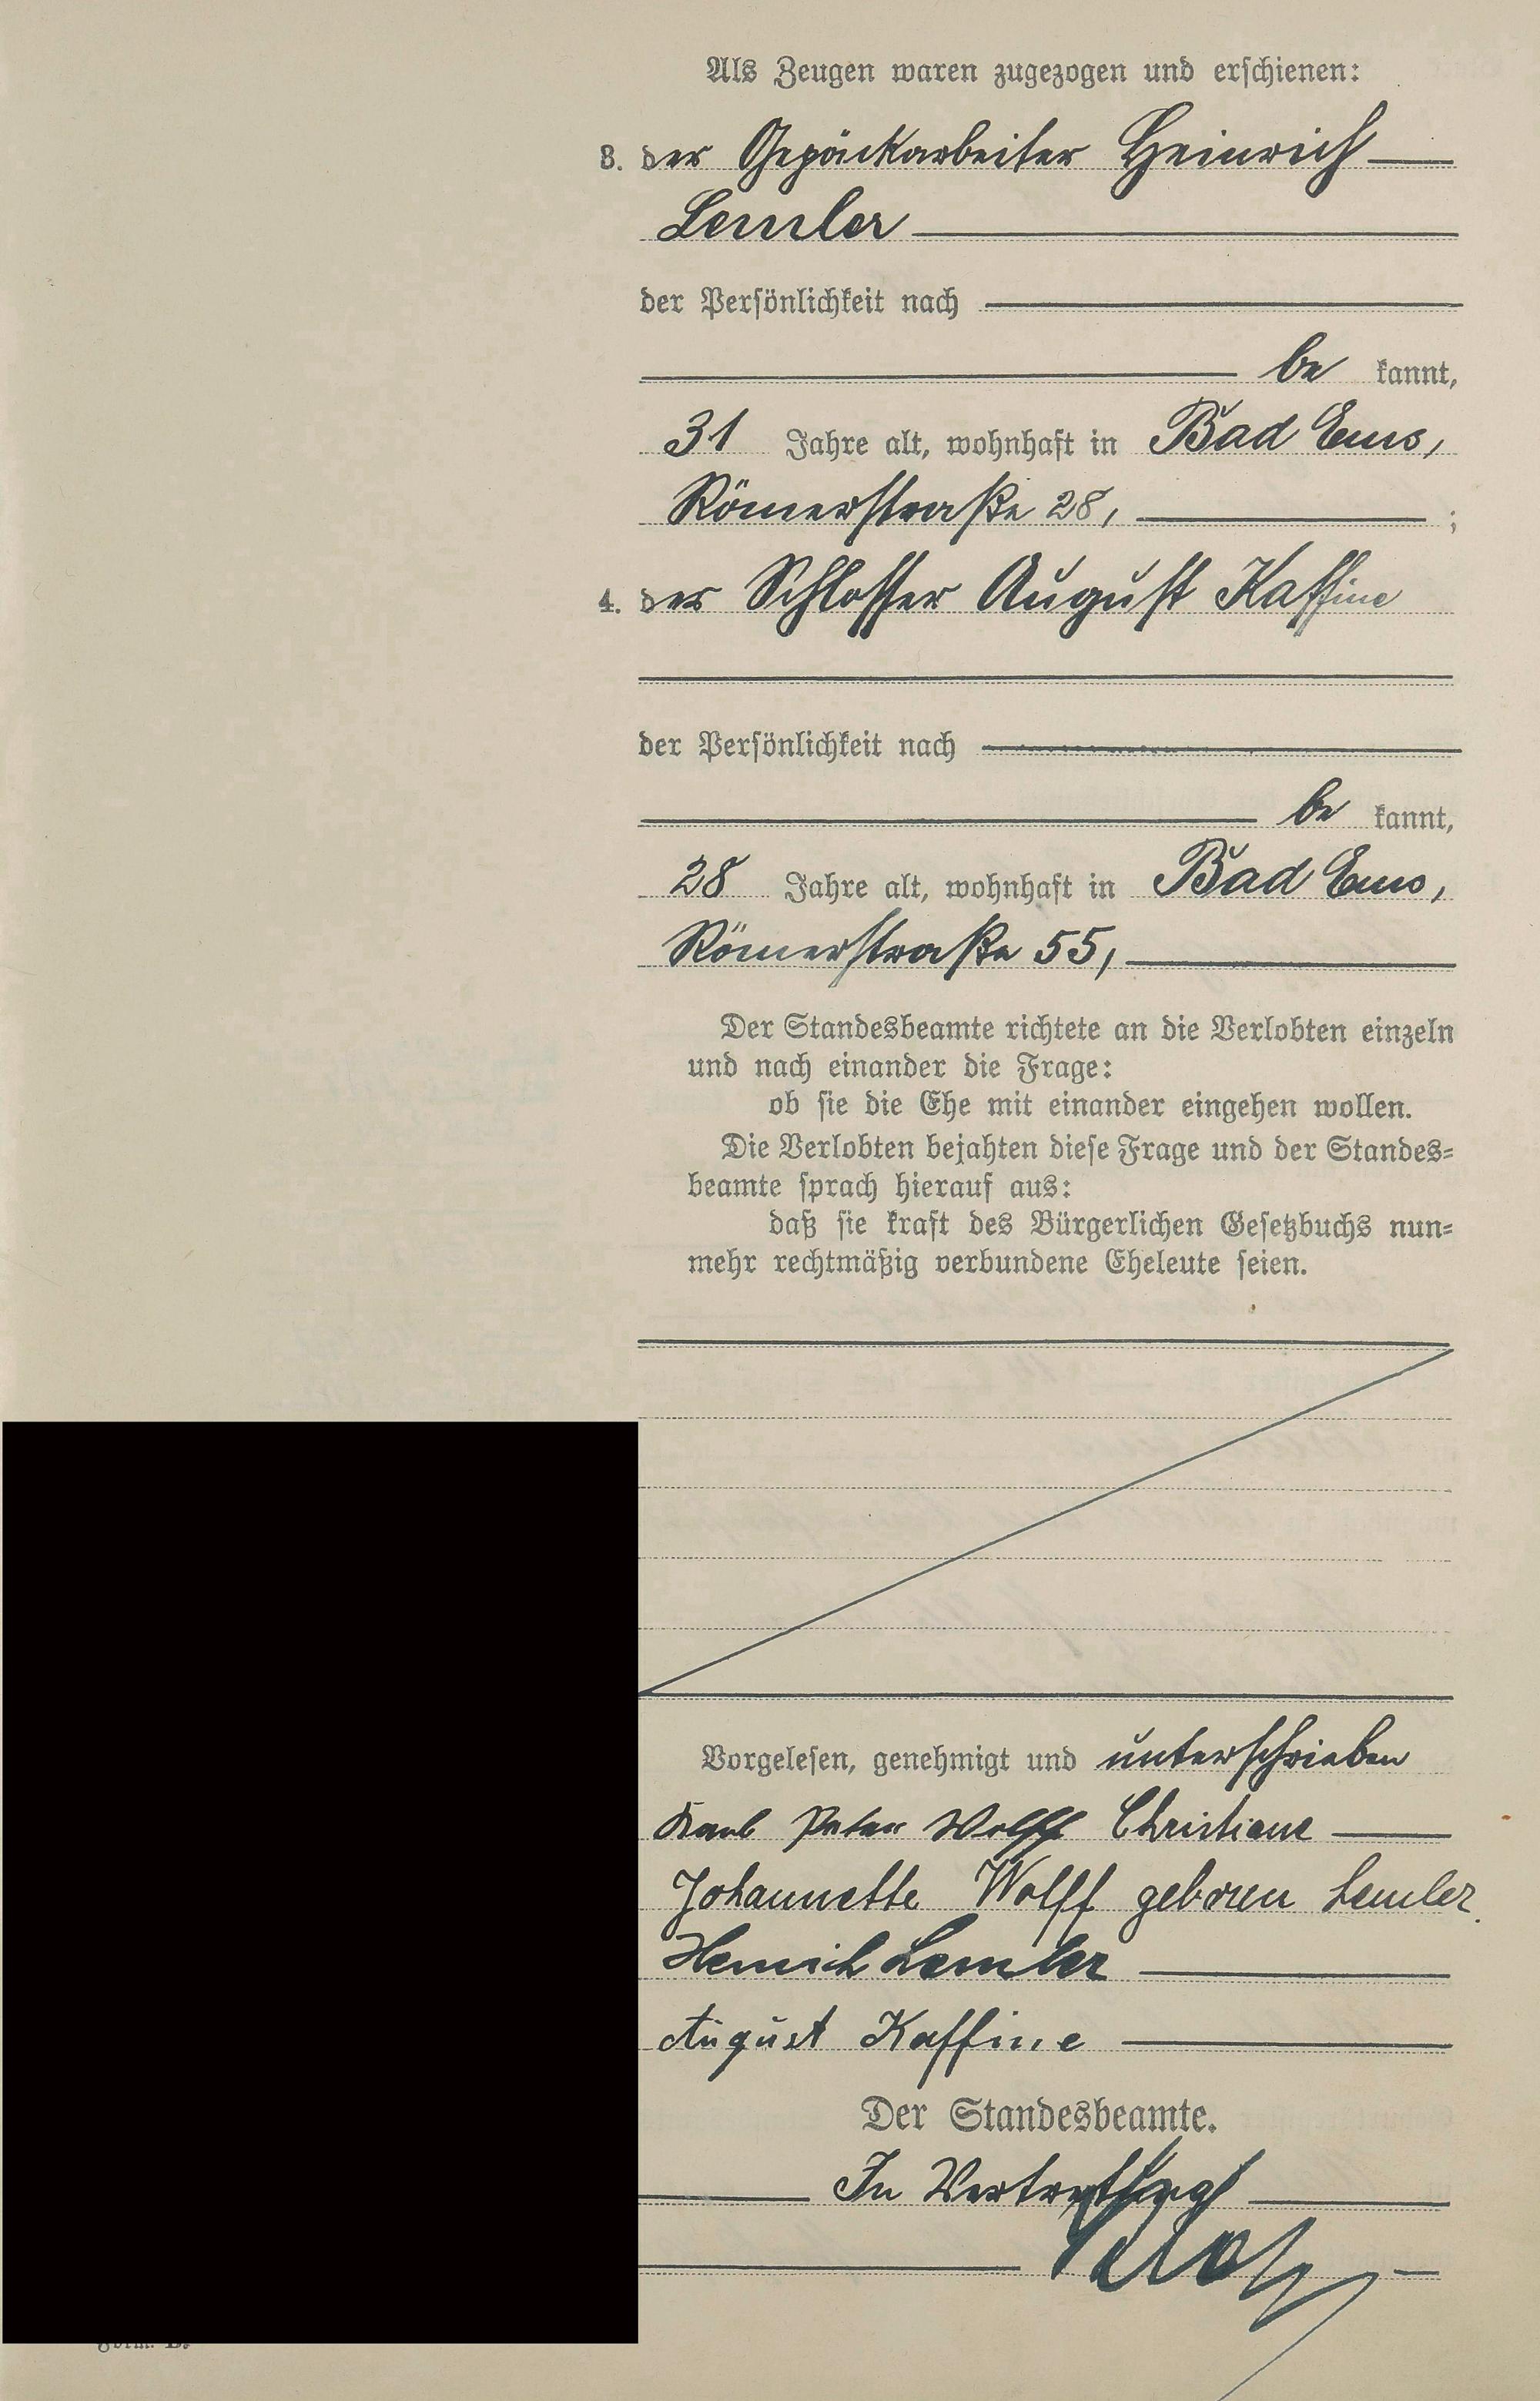 Als Zeugen waren zugezogen und erschienen:
3. der Gepäckarbeiter Heinrich
Lemler
der Persönlichkeit nach
be kannt,
31 Jahre alt, wohnhaft in Bad Ems,
Römerstraße 28, ;
4. der Schlosser August Kaffine
der Persönlichkeit nach
be kannt,
28 Jahre alt, wohnhaft in Bad Ems,
Römerstraße 55,
Der Standesbeamte richtete an die Verlobten einzeln
und nach einander die Frage:
ob sie die Ehe mit einander eingehen wollen.
Die Verlobten bejahten diese Frage und der Standes=
beamte sprach hierauf aus:
daß sie kraft des Bürgerlichen Gesetzbuchs nun=
mehr rechtmäßig verbundene Eheleute seien.
Vorgelesen, genehmigt und unterschrieben
Karl Peter Wolff Christiane
Johannette Wolff geboren Lemler.
Heinrich Lemler
August Kaffine
Der Standesbeamte.
In Vertretung